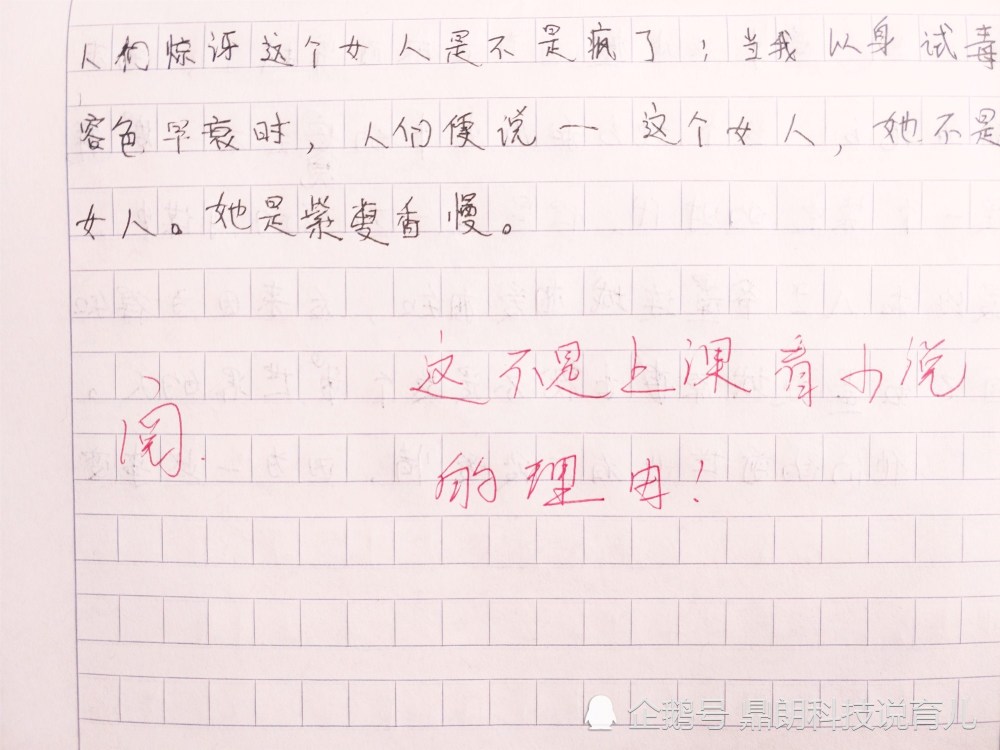 人们惊讶这个女人是不是疯了；当我以身试毒
容色早衰时，人们便说一 这个女人，她不是
女人。她是紫蔓香慢。
这不是上课看小说
阅.
的理由！
企鹅号 鼎朗科技说育儿